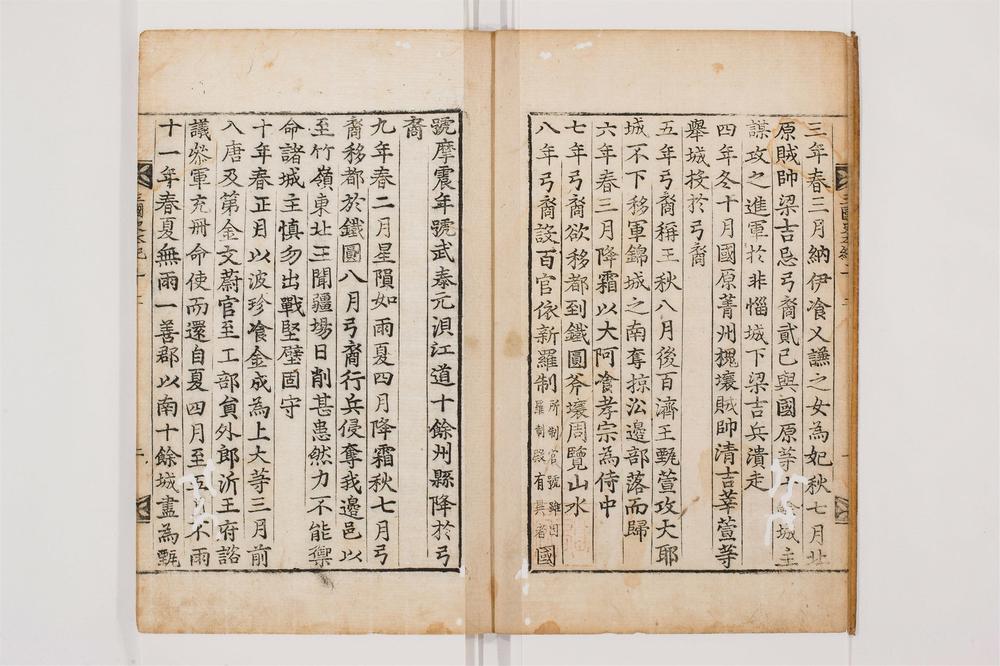 三年春三月納伊飡乂謙之女為妃秋七月北
原賊帥梁吉忌弓裔貳己與國原等十餘城主
謀攻之進軍於非惱城下梁吉兵潰走
四年冬十月國原菁州槐壤賊帥清吉莘萱等
舉城投於弓裔
五年弓裔稱王秋八月後百濟王甄萱攻大耶
城不下移軍錦城之南奪掠㳂邊部落而歸
六年春三月降霜以大阿飡孝宗為侍中
七年弓裔欲移都到鐵圓斧壤周覽山水
八年弓裔設百官依新羅制所制官號雖因羅制殿有異者國
號摩震年號武泰元浿江道十餘州縣降於弓
裔
九年春二月星隕如雨夏四月降霜秋七月弓
裔移都於鐵圓八月弓裔行兵侵奪我邊邑以
至竹嶺東北王聞疆場日削甚患然力不能禦
命諸城主慎勿出戰堅壁固守
十年春正月以波珍飡金成為上大等三月前
入唐及第金文蔚官至工部負外郎沂王府諮
議叅軍充冊命使而還自夏四月至五月不雨
十一年春夏無雨一善郡以南十餘城盡為甄